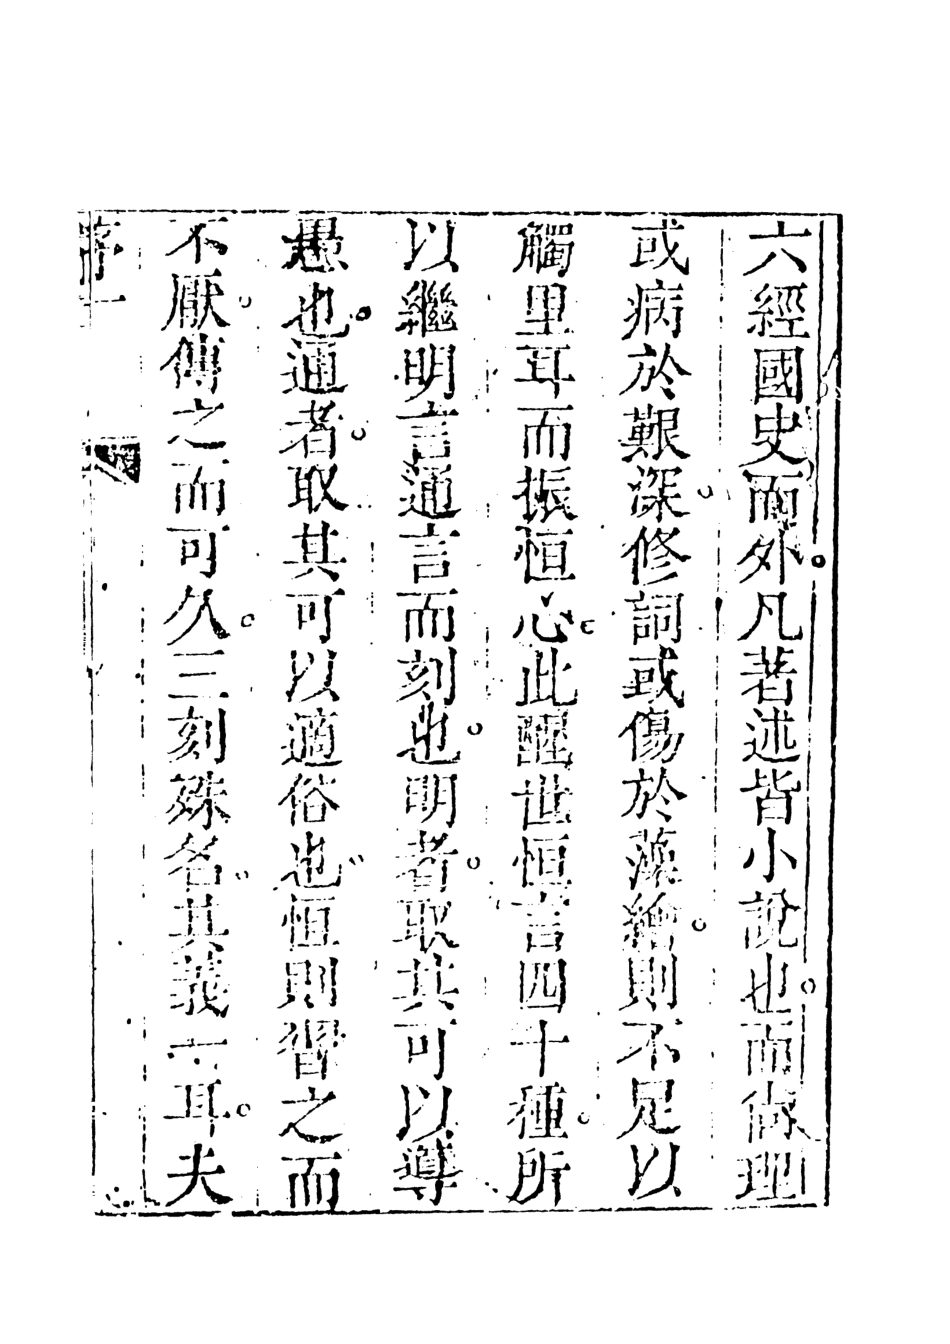 六經國史而外凡著述皆小說也而尚理
或病於艱深修詞或傷於藻繪則不足以
觸里耳而振恒心此醒世恒言四十種所
以繼明言通言而刻也明者取其可以導
愚也通者取其可以適俗也恒則習之而
不厭傳之而可久三刻殊名其義一耳夫
序一